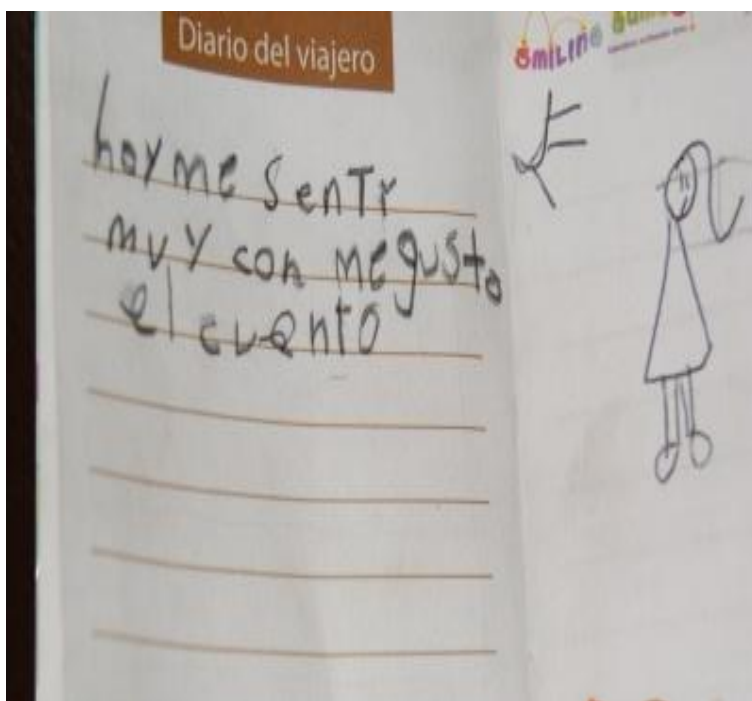 Diario del viajero
hoy me senTr
muy con me gusto
el cuento